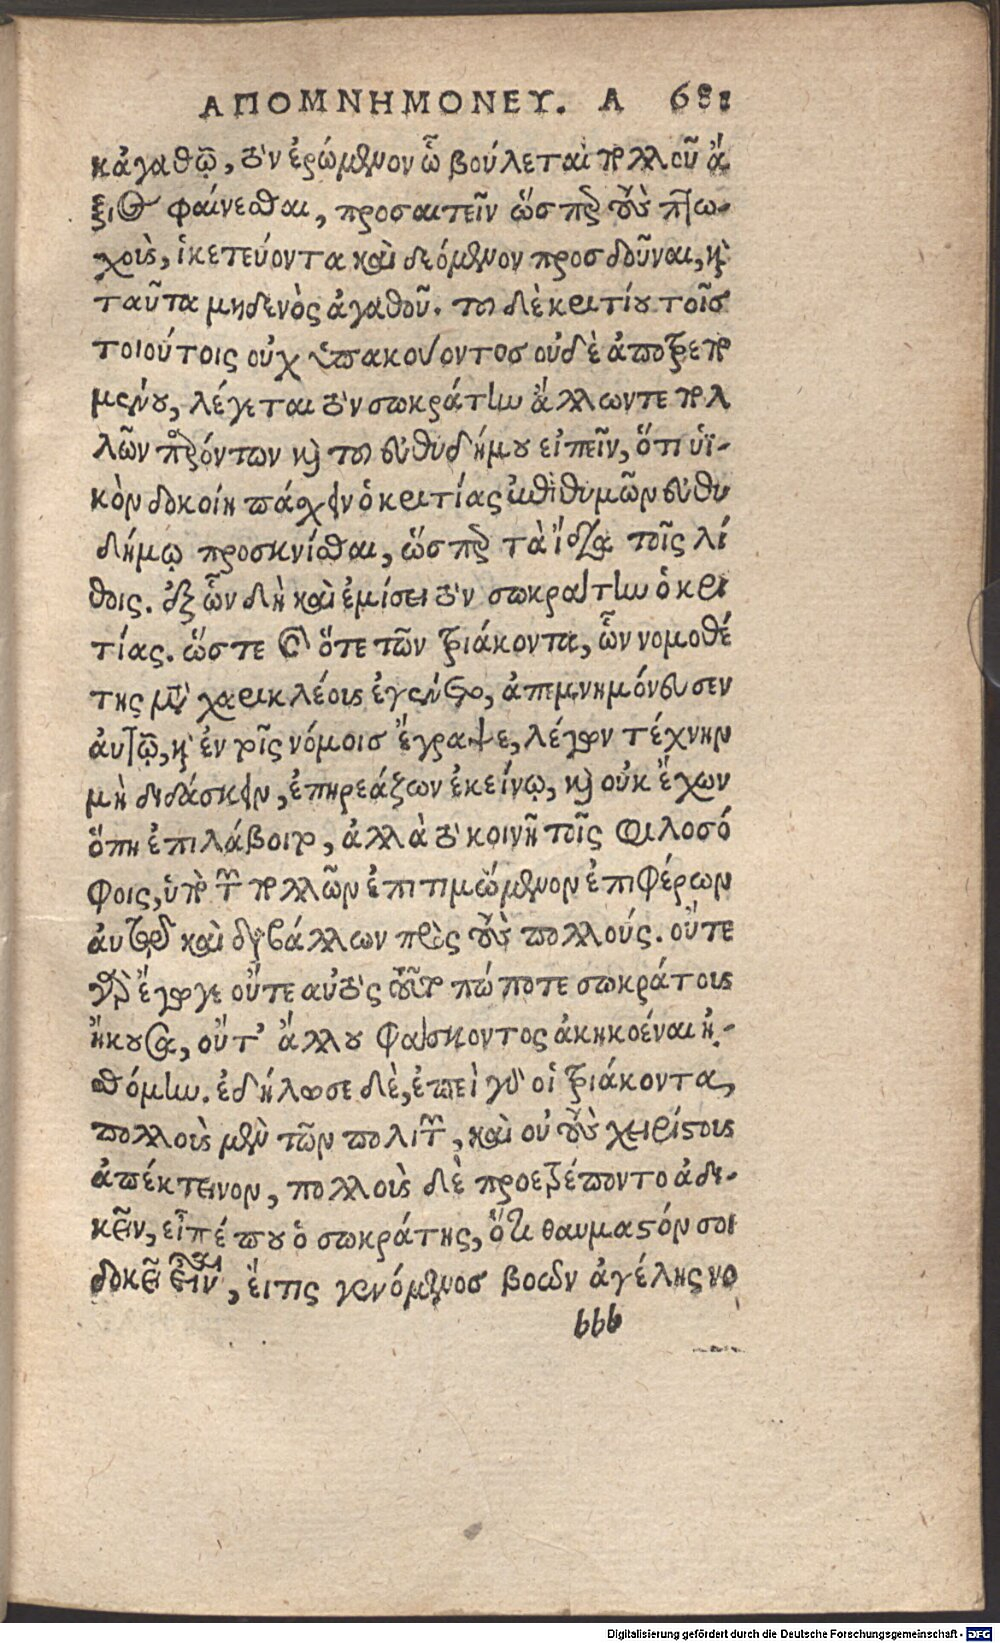 ΑΠΟΜΝΗΜΟΝΕΥ. Α 681
κἀγαθῷ, τὸν ἐρώμενον ᾧ βούλεται πολλοῦ ἄ
ξιος φαίνεσθαι, προσαιτεῖν ὥσπερ τοὺς πτω-
χοὺς, ἱκετεύοντα καὶ δεόμενον προσδοῦναι, καὶ
ταῦτα μηδενὸς ἀγαθοῦ. τοῦ δὲ κριτίου τοῖσ
τοιούτοις οὐχ ὑπακούοντοσ οὐδὲ ἀποτρεπο
μένου, λέγεται τὸν σωκράτην ἄλλωντε πολ
λῶν παρόντων καὶ τοῦ εὐθυδήμου εἰπεῖν, ὅτι ὑϊ-
κὸν δοκοίη πάσχειν ὁ κριτίας ἐπιθυμῶν εὐθυ
δήμῳ προσκνίσθαι, ὥσπερ τὰ ὕδια τοῖς λί
θοις. ἐξ ὧν δὴ καὶ ἐμίσει τὸν σωκράτην ὁ κρι
τίας. ὥστε καὶ ὅτε τῶν τριάκοντα, ὧν νομοθέ
της μετὰ χαρικλέους ἐγένετο, ἀπεμνημόνευσεν
ἀυτῷ, καὶ ἐν τοῖς νόμοισ ἔγραψε, λέγων τέχνην
μὴ διδάσκειν, ἐπηρεάζων ἐκείνῳ, καὶ οὐκ ἔχων
ὅπη ἐπιλάβοιτο, ἀλλὰ τὸ κοινῇ τοῖς φιλοσό
φοις, ὑπὸ τῶν πολλῶν ἐπιτιμώμενον ἐπιφέρων
ἀυτῷ καὶ διαβάλλων πρὸς τοὺς πολλούς. οὔτε
γὰρ ἔγωγε οὔτε αὐτὸς τοῦτο πώποτε σωκράτους
ἤκουσα, οὔτ' ἄλλου φάσκοντος ἀκηκοέναι ἠ-
σθόμην. ἐδήλωσε δὲ, ἐπεὶ γὰρ οἱ τριάκοντα,
πολλοὺς μὲν τῶν πολιτῶν, καὶ οὐ τοὺς χειρίστους
ἀπέκτεινον, πολλοὺς δὲ προετρέποντο ἀδι-
κεῖν, εἶπέ που ὁ σωκράτης, ὅτι θαυμαστόν σοι
δοκεῖ εἶναι, ἔιτις γενόμενοσ βοῶν ἀγέλης νο
bbb
Digitalisierung gefördert durch die Deutsche Forschungsgemeinschaft - DFG